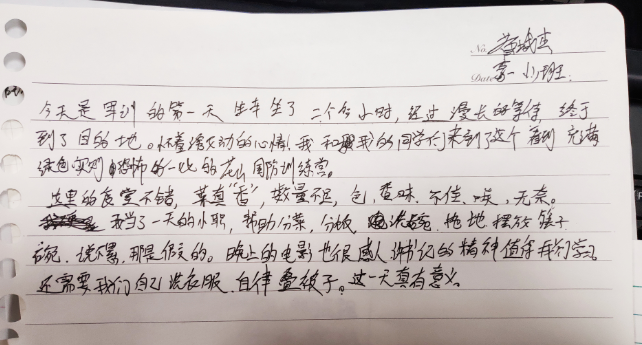 No.
Date 高一 小1班.
今天是军训的第一天 坐车坐了二个多小时,经过漫长的等待,终于
到了目的地。怀着激动的心情!我和我的同学们来到了这个看到充满
绿色实则恐怖的一比的花山国防训练营。
这里的食堂不错,菜真“香”,数量不足,色,香味,不佳,唉,无奈。
我当了一天的小职,帮助分菜,分饭,洗碗,拖地 摆放筷子
碗,说不累,那是假的。晚上的电影也很感人 谢书记的精神值得我们学习
还需要我们自己洗衣服.自律 叠被子。这一天真有意义。